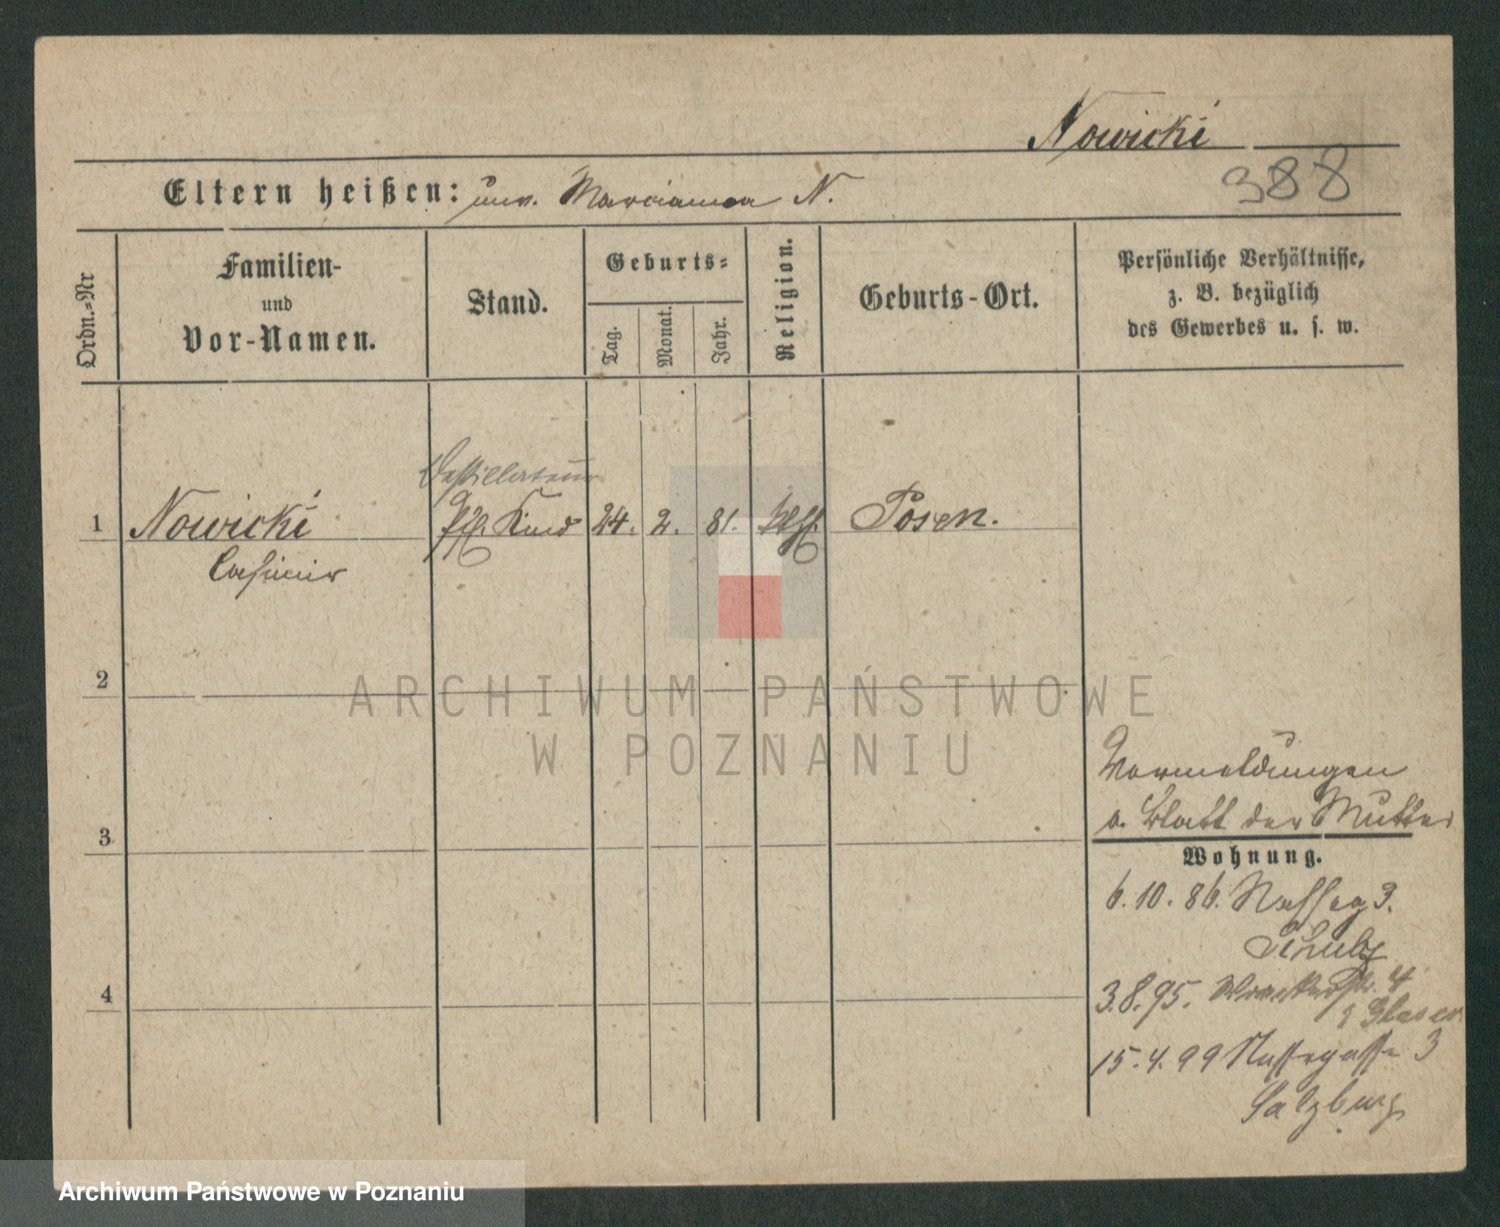 Nowicki
388
Eltern heißen: unv. Marianna N.
Ordn.-Nr
Familien-
und
Vor-Namen.
Stand.
Geburts-
Tag.
Monat.
Jahr.
Religion.
Geburts-Ort.
Persönliche Verhältnisse,
z. B. bezüglich
des Gewerbes u. s. w.
Destillateur
1 Nowicki Kind 24. 2. 81. Posen.
Casimir
2
ARCHIWUM PAŃSTWOWE
W POZNANIU
Vormeldungen
a. Blatt der Mutter
3
Wohnung.
6.10.86. 3.
Schulz
4
3.8.95. 4
Glaser
15.4.99 Nassegasse 3
Salzburg
Archiwum Państwowe w Poznaniu